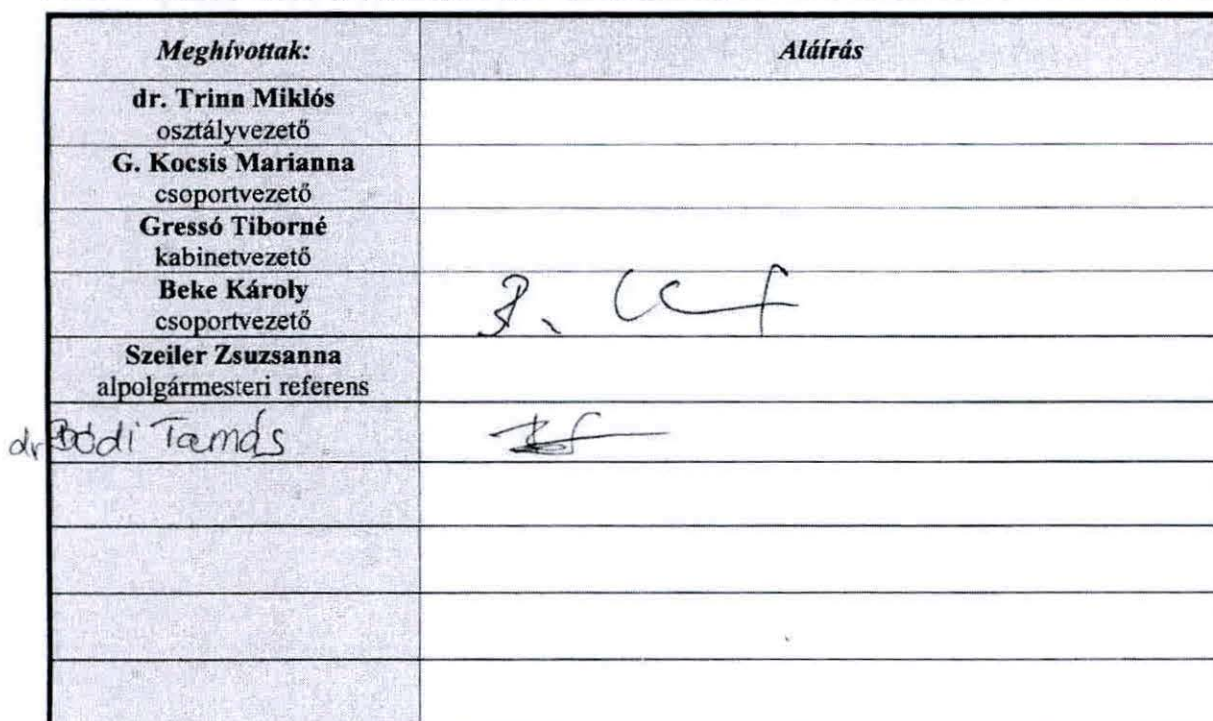 Meghívottak: Aláírás
dr. Trinn Miklós
osztályvezető
G. Kocsis Marianna
csoportvezető
Gressó Tiborné
kabinetvezető
Beke Károly
csoportvezető
Szeiler Zsuzsanna
alpolgármesteri referens
dr Bódi Tamás